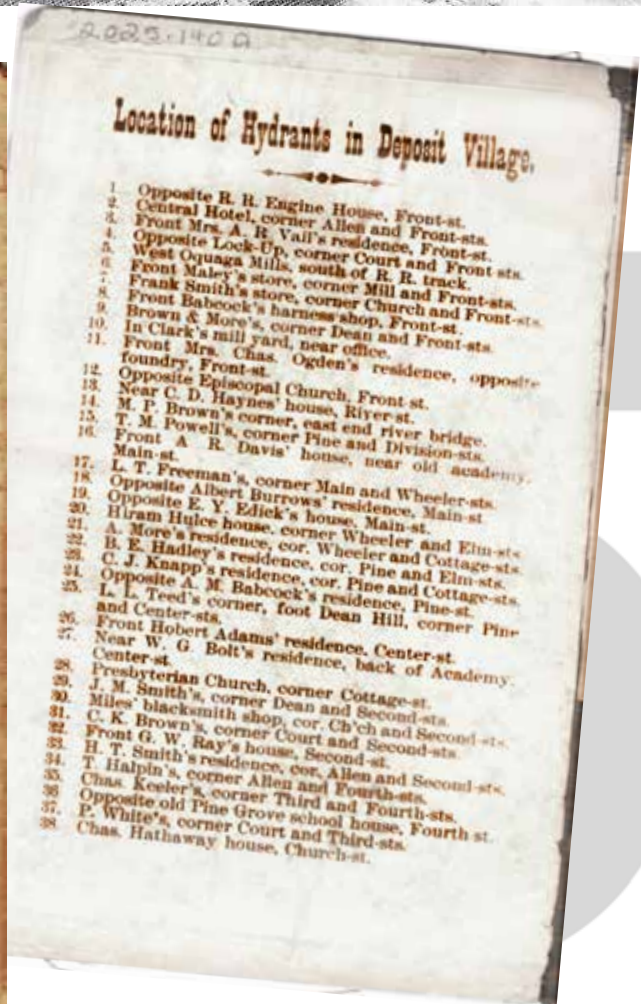 2025.140 A
Location of Hydrants in Deposit Village.
1. Opposite R. R. Engine House, Front-st.
2. Central Hotel, corner Allen and Front-sts.
3. Front Mrs. A. R. Vail's residence, Front-st.
4. Opposite Lock-Up, corner Court and Front sts.
5. West Oquaga Mills, south of R. R. track.
6. Front Maley's store, corner Mill and Front-sts.
7. Frank Smith's store, corner Church and Front-sts.
8. Front Babcock's harness shop, Front-st.
9. Brown & More's, corner Dean and Front-sts.
10. In Clark's mill yard, near office.
11. Front Mrs. Chas. Ogden's residence, opposite
foundry, Front-st.
12. Opposite Episcopal Church, Front st.
13. Near C. D. Haynes' house, River-st.
14. M. P. Brown's corner, east end river bridge.
15. T. M. Powell's, corner Pine and Division-sts.
16. Front A R. Davis' house, near old academy,
Main-st.
17. L. T. Freeman's, corner Main and Wheeler-sts.
18. Opposite Albert Burrows' residence, Main-st
19. Opposite E. Y. Edick's house, Main-st.
20. Hiram Hulce house, corner Wheeler and Elm-sts
21. A. More's residence, cor. Wheeler and Cottage-sts
22. B. E. Hadley's residence, cor. Pine and Elm-sts.
23. C. J. Knapp's residence, cor. Pine and Cottage-sts.
24. Opposite A. M. Babcock's residence, Pine-st.
25. L. L. Teed's corner, foot Dean Hill, corner Pine
and Center-sts.
26. Front Hobert Adams' residence, Center-st.
27. Near W. G. Bolt's residence, back of Academy.
Center-st.
28. Presbyterian Church, corner Cottage-st.
29. J. M. Smith's, corner Dean and Second-sts.
30. Miles' blacksmith shop, cor. Ch'ch and Second-sts.
31. C. K. Brown's, corner Court and Second-sts.
32. Front G. W. Ray's house, Second-st.
33. H. T. Smith's residence, cor. Allen and Second-sts.
34. T. Halpin's, corner Allen and Fourth-sts.
35. Chas. Keeler's, corner Third and Fourth-sts.
36 Opposite old Pine Grove school house, Fourth st.
37. P. White's, corner Court and Third-sts.
38. Chas. Hathaway house, Church-st.